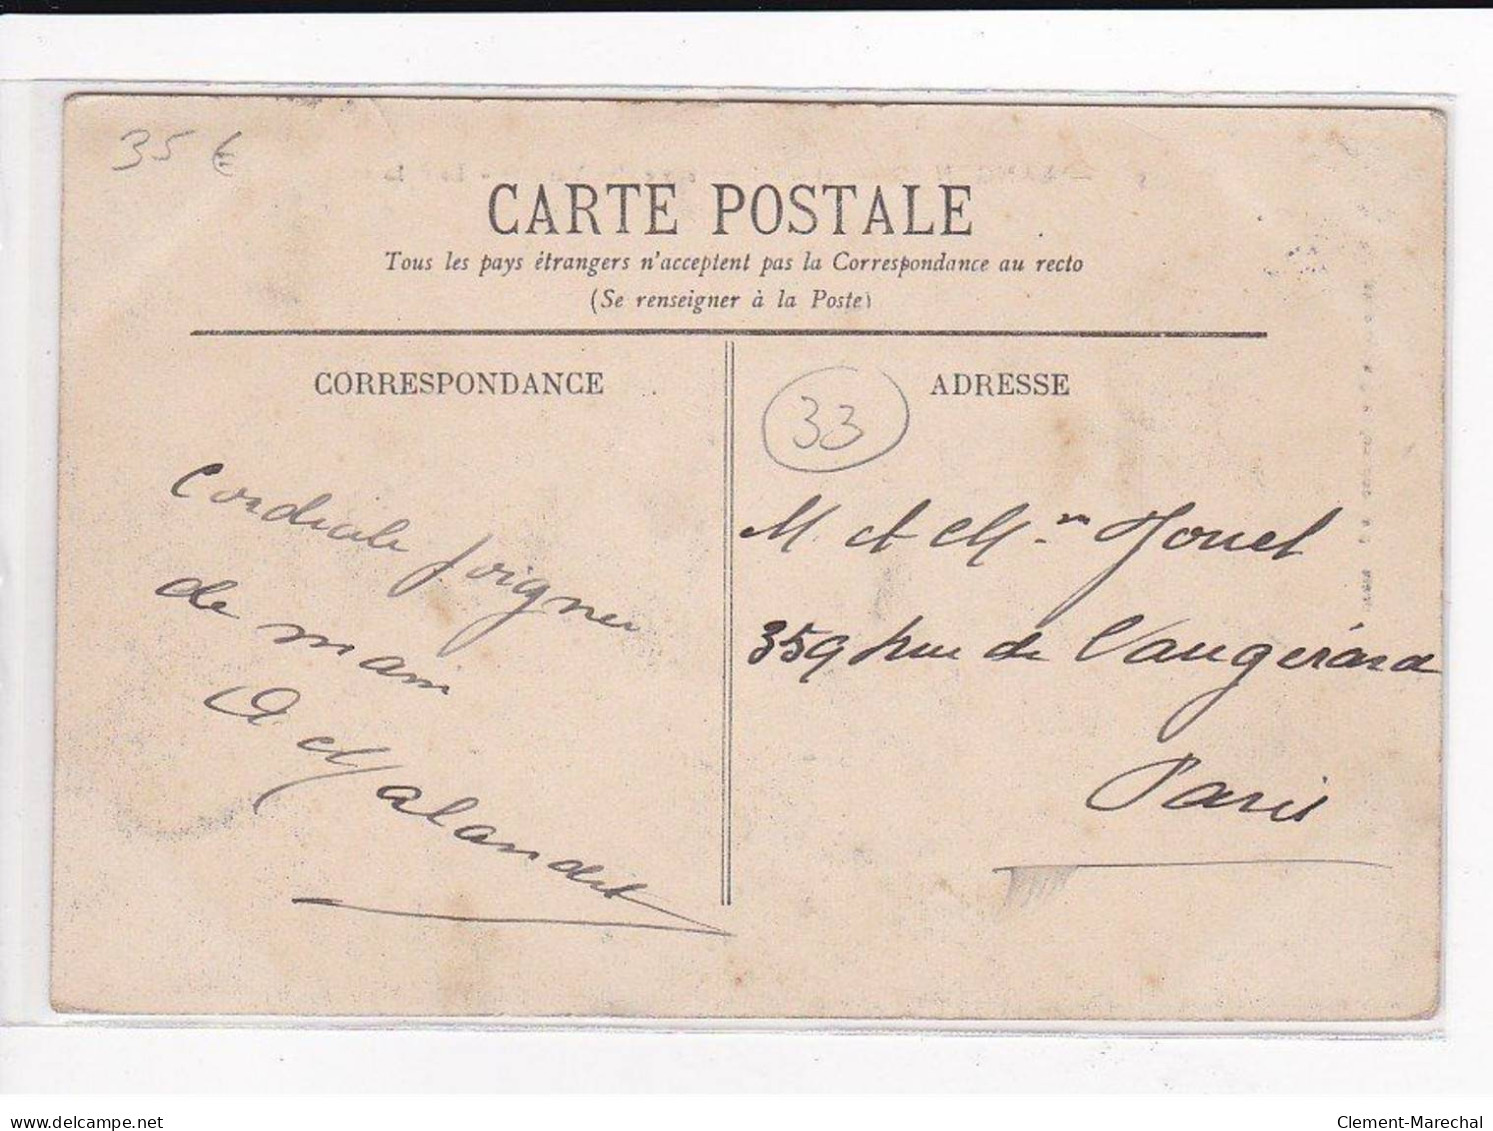 35 €
CARTE POSTALE
Tous les pays étrangers n'acceptent pas la Correspondance au recto
(Se renseigner à la Poste)
CORRESPONDANCE
ADRESSE
33
Cordiale poignée
de main
A. Malandit
M. et Mm Jouet
359 rue de Vaugirard
Paris
delcampe.net
Clement-Marechal